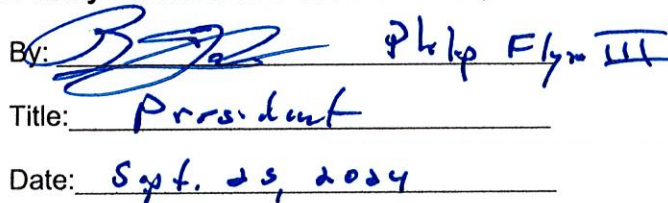 By: Philip Flynn III
Title: President
Date: Sept. 25, 2024